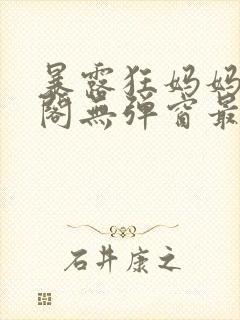 暴露狂妈妈
阁无弹窗最
石井康之